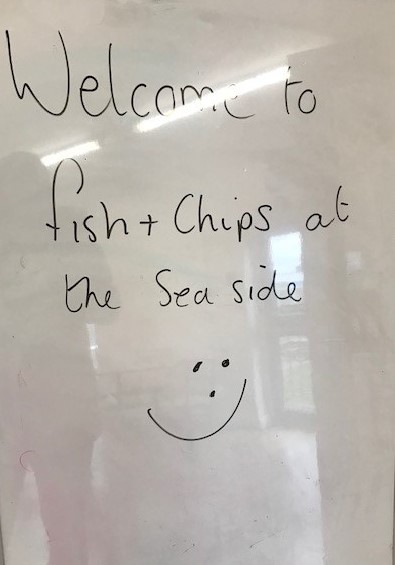 Welcome to
fish + Chips at
the Sea side